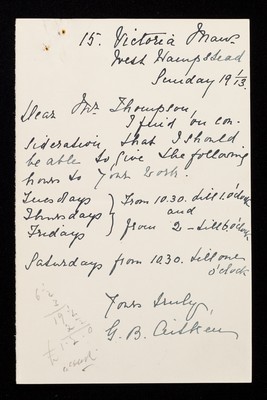 15. Victoria Mans
West Hampstead
Sunday 19/13.
Dear Mr Thompson,
I find on con-
sideration that I should
be able to give the following
hours to your work.
Tuesdays } From 10.30. till 1. o'clock
Thursdays } and
Fridays } from 2 - till 6 o'clock
Saturdays from 10.30. till one
o'clock
Yours truly,
G. B. Aitken